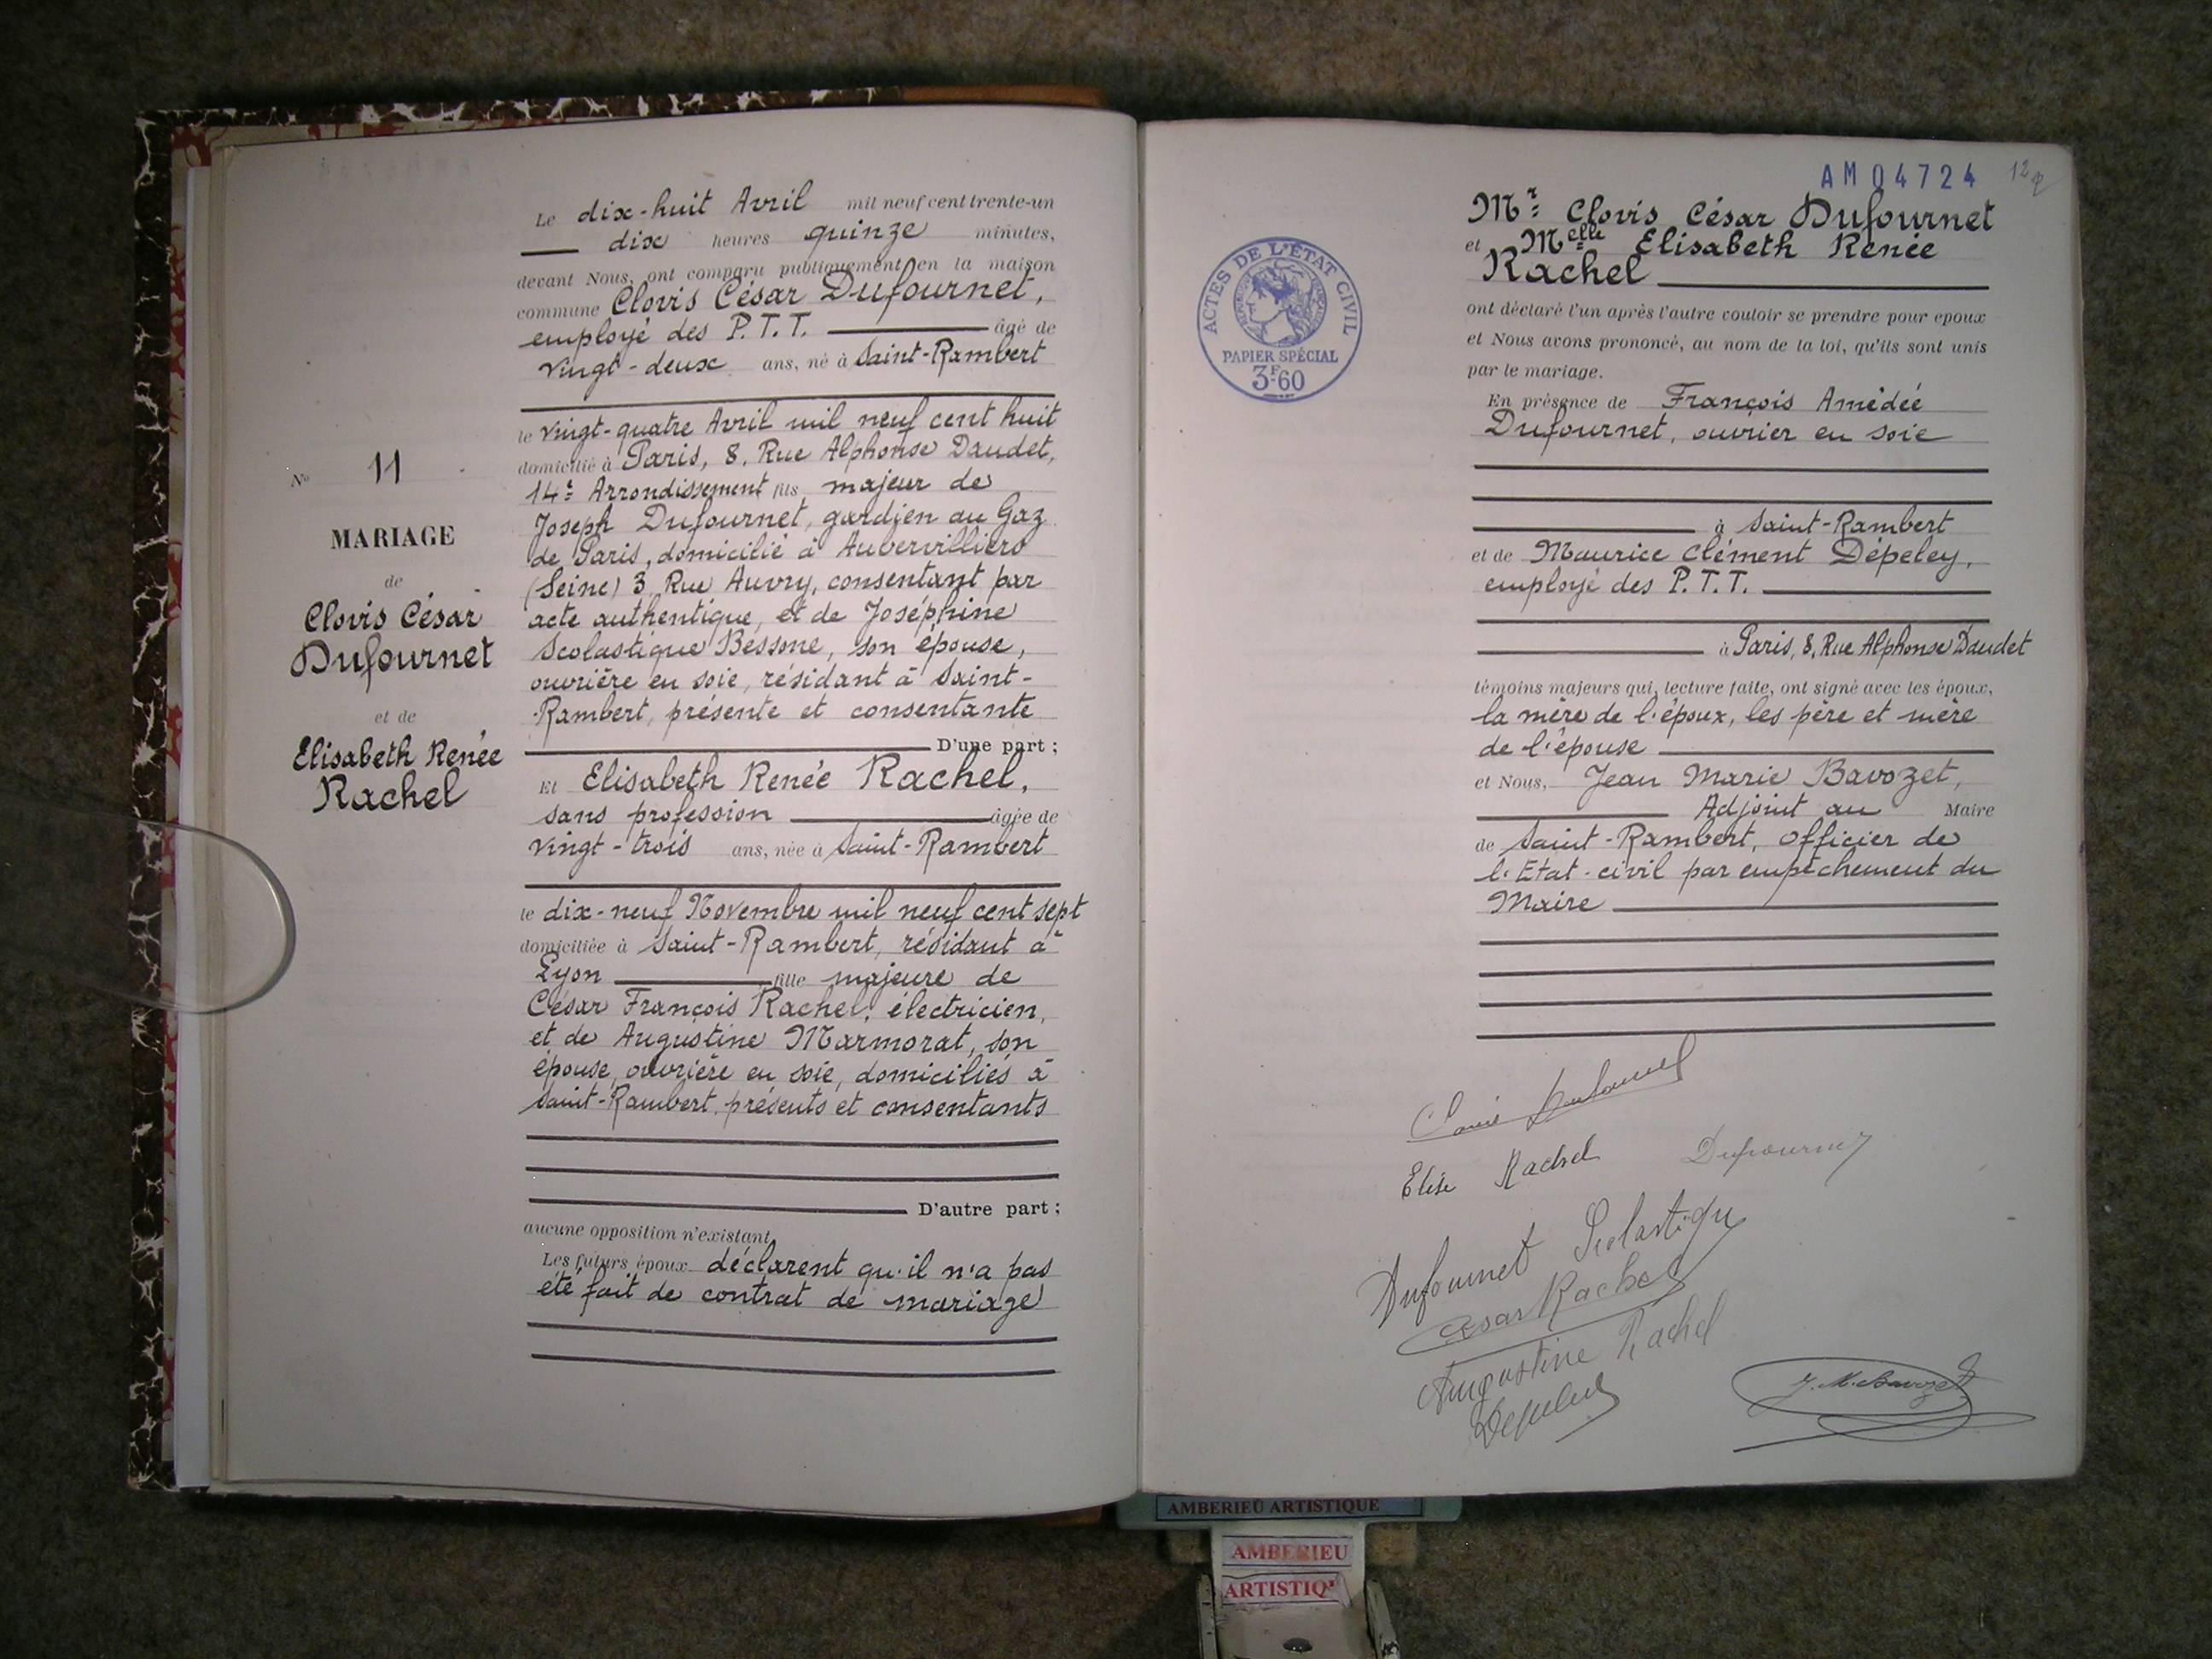 N° 11
MARIAGE
de
Clovis César
Dufournet
et de
Elisabeth Renée
Rachel
Le dix-huit Avril mil neuf cent trente-un
dix heures quinze minutes,
devant Nous, ont comparu publiquement en la maison
commune Clovis César Dufournet,
employé des P.T.T. âgé de
vingt-deux ans, né à Saint-Rambert
le vingt-quatre Avril mil neuf cent huit
domicilié à Paris, 8, Rue Alphonse Daudet,
14e Arrondissement fils majeur de
Joseph Dufournet, gardien au Gaz
de Paris, domicilié à Aubervilliers
(Seine) 3 Rue Auvry, consentant par
acte authentique, et de Joséphine
Scolastique Bessone, son épouse,
ouvrière en soie, résidant à Saint-
Rambert, présente et consentante
D'une part ;
Et Elisabeth Renée Rachel,
sans profession âgée de
vingt-trois ans, née à Saint-Rambert
le dix-neuf Novembre mil neuf cent sept
domiciliée à Saint-Rambert, résidant à
Lyon fille majeure de
César François Rachel, électricien,
et de Augustine Marmorat, son
épouse, ouvrière en soie, domiciliés à
Saint-Rambert, présents et consentants
D'autre part ;
aucune opposition n'existant,
Les futurs époux déclarent qu'il n'a pas
été fait de contrat de mariage
AM 04724
12
ACTES DE L'ÉTAT CIVIL
RÉPUBLIQUE FRANÇAISE
PAPIER SPÉCIAL
3F60
Mr Clovis César Dufournet
et Melle Elisabeth Renée
Rachel
ont déclaré l'un après l'autre vouloir se prendre pour époux
et Nous avons prononcé, au nom de la loi, qu'ils sont unis
par le mariage.
En présence de François Amédée
Dufournet, ouvrier en soie
à Saint-Rambert
et de Maurice Clément Dépeley,
employé des P.T.T.
à Paris, 8, Rue Alphonse Daudet
témoins majeurs qui, lecture faite, ont signé avec les époux,
la mère de l'époux, les père et mère
de l'épouse
et Nous, Jean Marie Bavozet,
Adjoint au Maire
de Saint-Rambert, Officier de
l'Etat-civil par empêchement du
Maire
Dufournet
Elise Rachel
Dufournet
Dufournet Scolastique
César Rachel
Augustine Rachel
J. M. Bavozet
AMBERIEU ARTISTIQUE
AMBERIEU
ARTISTIQ